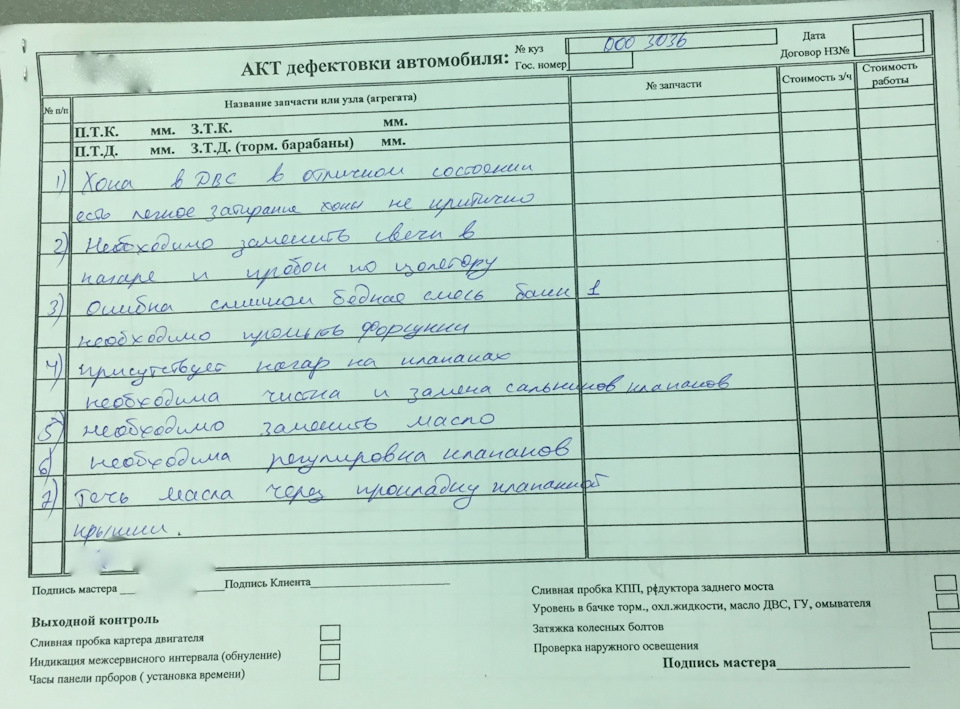 АКТ дефектовки автомобиля:
№ куз 000 3036
Гос. номер
Дата
Договор НЗ№
№ п/п Название запчасти или узла (агрегата) № запчасти Стоимость з/ч Стоимость работы
П.Т.К. мм. З.Т.К. мм.
П.Т.Д. мм. З.Т.Д. (торм. барабаны) мм.
1) Хона в ДВС в отличном состоянии
есть легкое затирание хоны не критично
2) Необходимо заменить свечи в
нагаре и пробои по изолятору
3) Ошибка слишком бедная смесь банк 1
необходимо промыть форсунки
4) присутствует нагар на клапанах
необходима чистка и замена сальников клапанов
5) необходимо заменить масло
6) необходима регулировка клапанов
7) Течь масла через прокладку клапанной
крышки.
Подпись мастера Подпись Клиента
Выходной контроль
Сливная пробка картера двигателя
Индикация межсервисного интервала (обнуление)
Часы панели прборов ( установка времени)
Сливная пробка КПП, рфдуктора заднего моста
Уровень в бачке торм., охл.жидкости, масло ДВС, ГУ, омывателя
Затяжка колесных болтов
Проверка наружного освещения
Подпись мастера